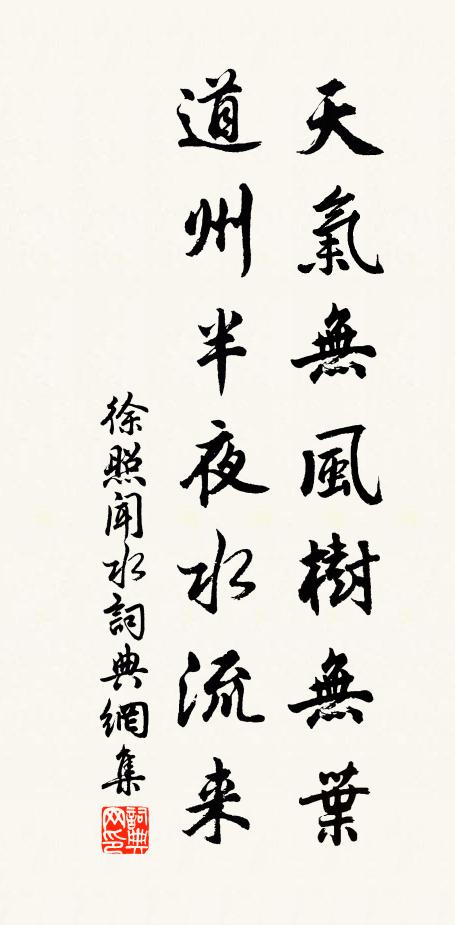 天氣無風樹無葉
道州半夜水流来
徐照聞水詞典網集
詞典网印